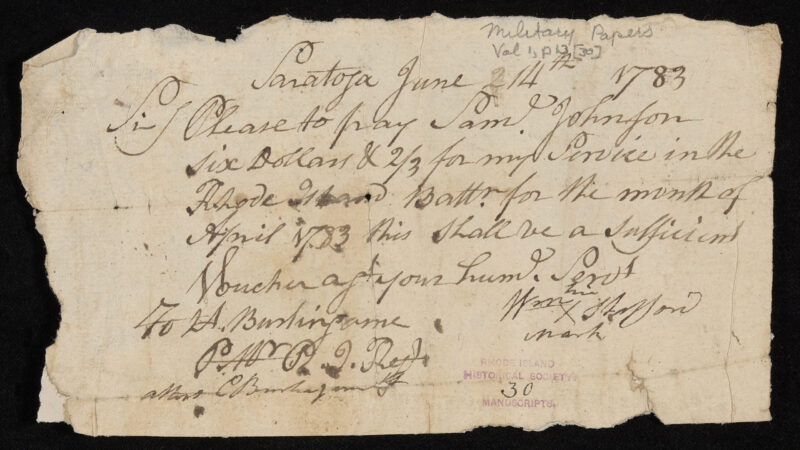 Military Papers
Vol 1, p 13 [30]
Saratoga June 14th 1783
Sir Please to pay Samd. Johnson
six Dollars & 2/3 for my Service in the
Rhode Island Battn. for the month of
April 1783 this shall be a sufficient
Voucher agt. your humd. Servt
Wm his X Stafford
mark
To Lt. Burlingame
P. Mr. R. I. Regt
RHODE ISLAND
HISTORICAL SOCIETY
30
MANUSCRIPTS